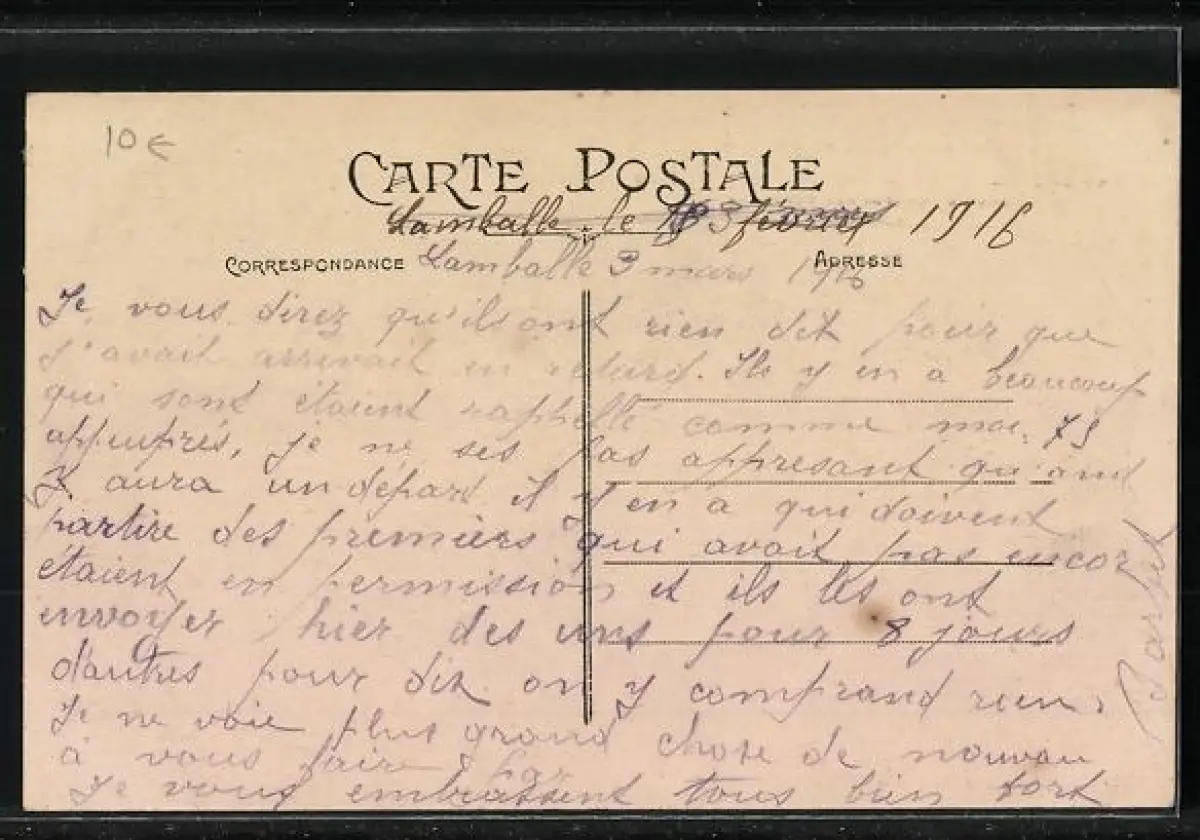 10 €
CARTE POSTALE
Lamballe le 3 février 1916
CORRESPONDANCE
Lamballe 3 mars 1916
ADRESSE
Je vous direz qu'ils ont rien dit pour que
j'avait arrivait en retard. Ils y en a beaucoup
qui sont étaient raphellé comme moi. 75
appuprés, je ne ses pas appresant quand
y aura un départ il y en a qui doivent
partire des premiers qui avait pas encor
étaient en permission et ils les ont
envoyer hier des uns pour 8 jours
d'autres pour dix on y comprand rien.
Je ne voie plus grand chose de nouvau
à vous faire par
Je vous embrassent tous bien fort